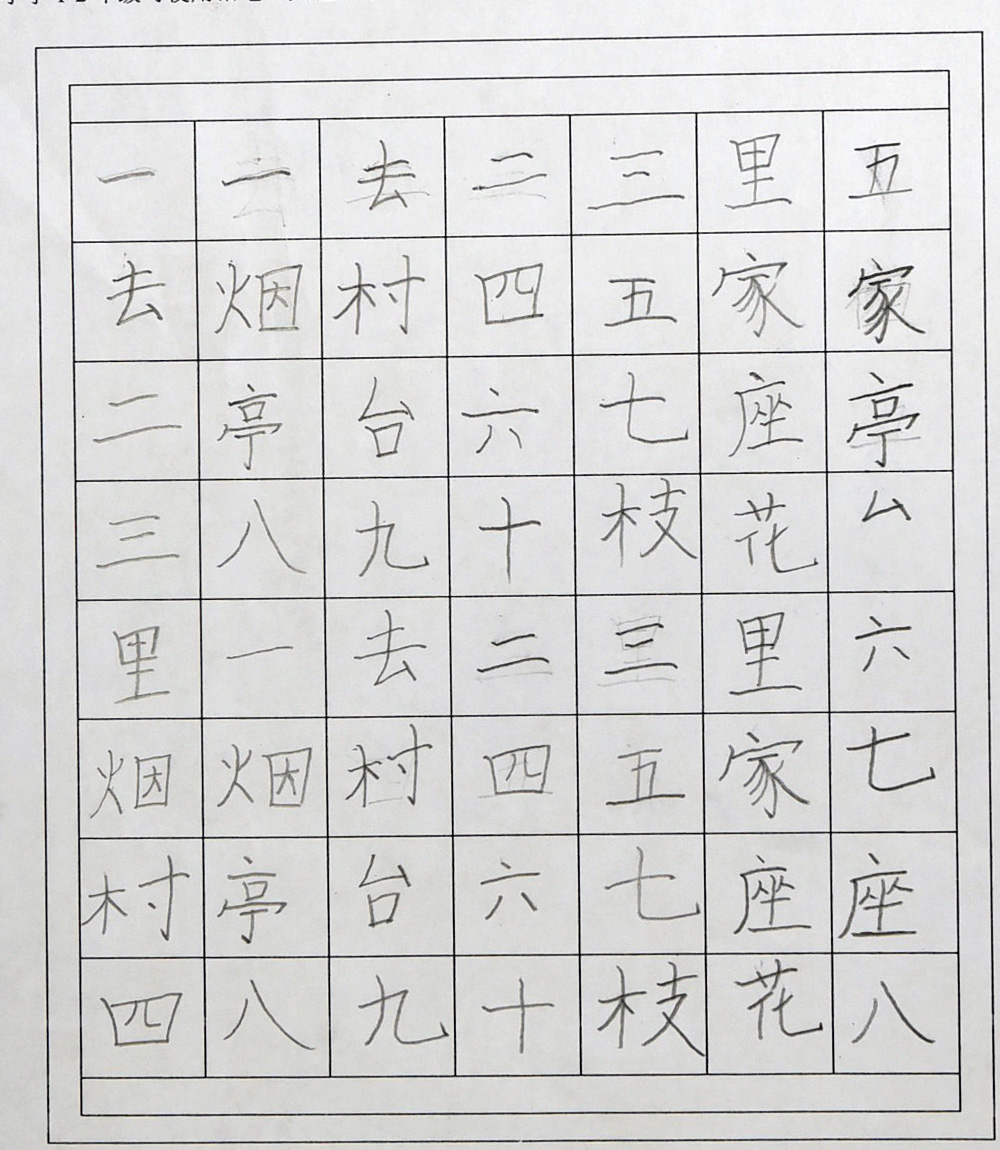 一 一 去 二 三 里 五
去 烟 村 四 五 家 家
二 亭 台 六 七 座 亭
三 八 九 十 枝 花 厶
里 一 去 二 三 里 六
烟 烟 村 四 五 家 七
村 亭 台 六 七 座 座
四 八 九 十 枝 花 八